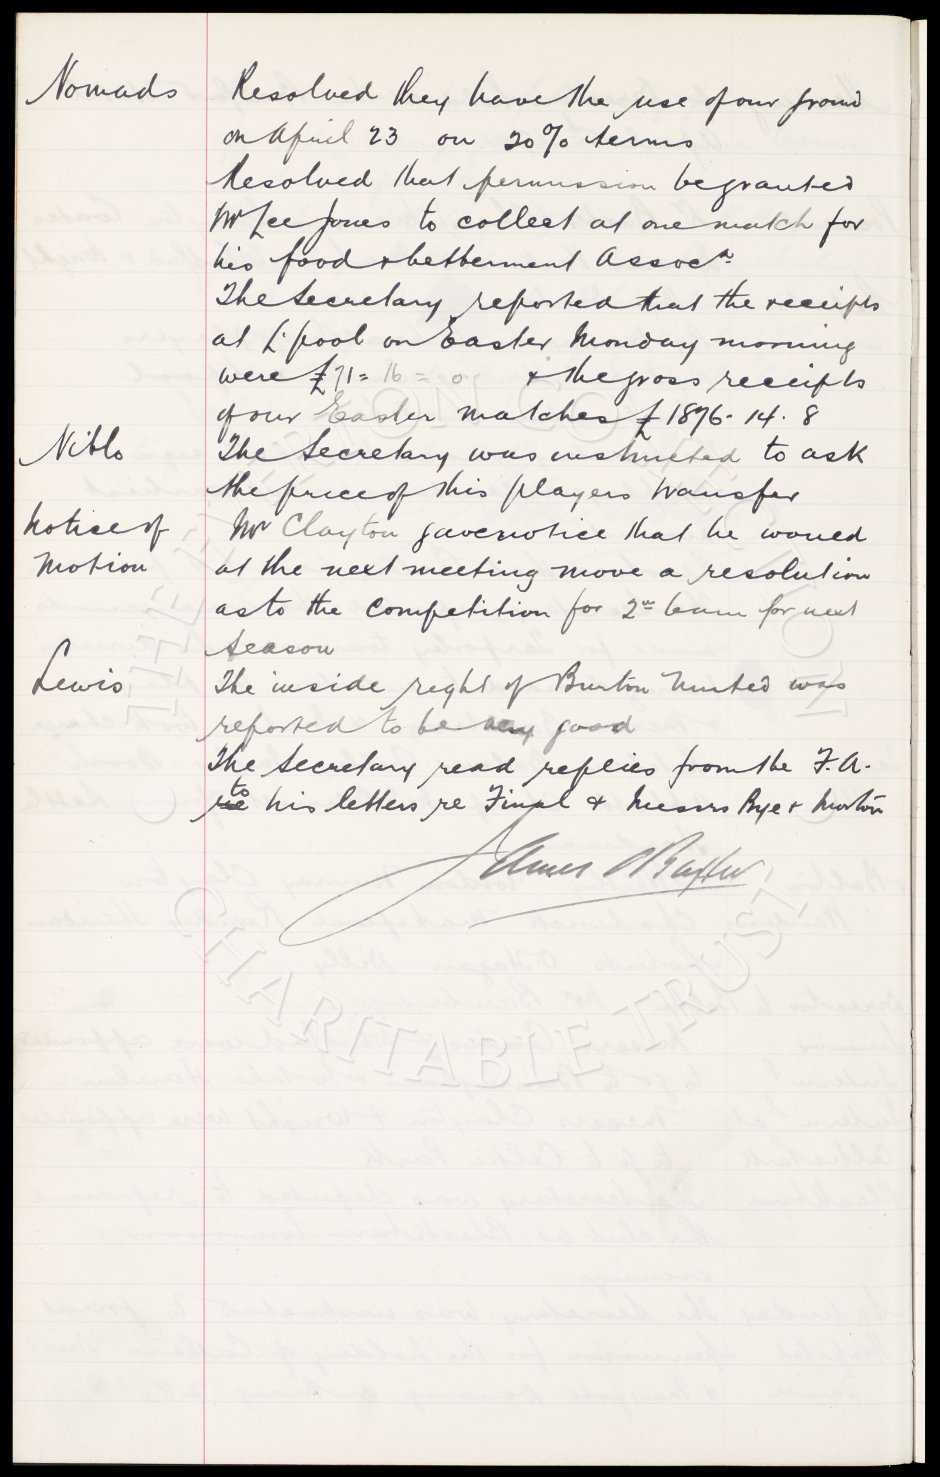 Nomads Resolved they have the use of our ground
on April 23 on 20% terms
Resolved that permission be granted
Mr Lee Jones to collect at one match for
his food & betterment Assocn
The Secretary reported that the receipts
at L'pool on Easter Monday morning
were £71=16=0 & the gross receipts
of our Easter matches £1876.14.8
Niblo The Secretary was instructed to ask
the price of this players transfer
Notice of Mr Clayton gave notice that he would
Motion at the next meeting move a resolution
as to the competition for 2nd team for next
Season
Lewis The inside right of Burton United was
reported to be very good
The Secretary read replies from the F.A.
to his letters re Final & Messrs Bye & Morton
James Baxter
THE EVERTON COLLECTION
CHARITABLE TRUST